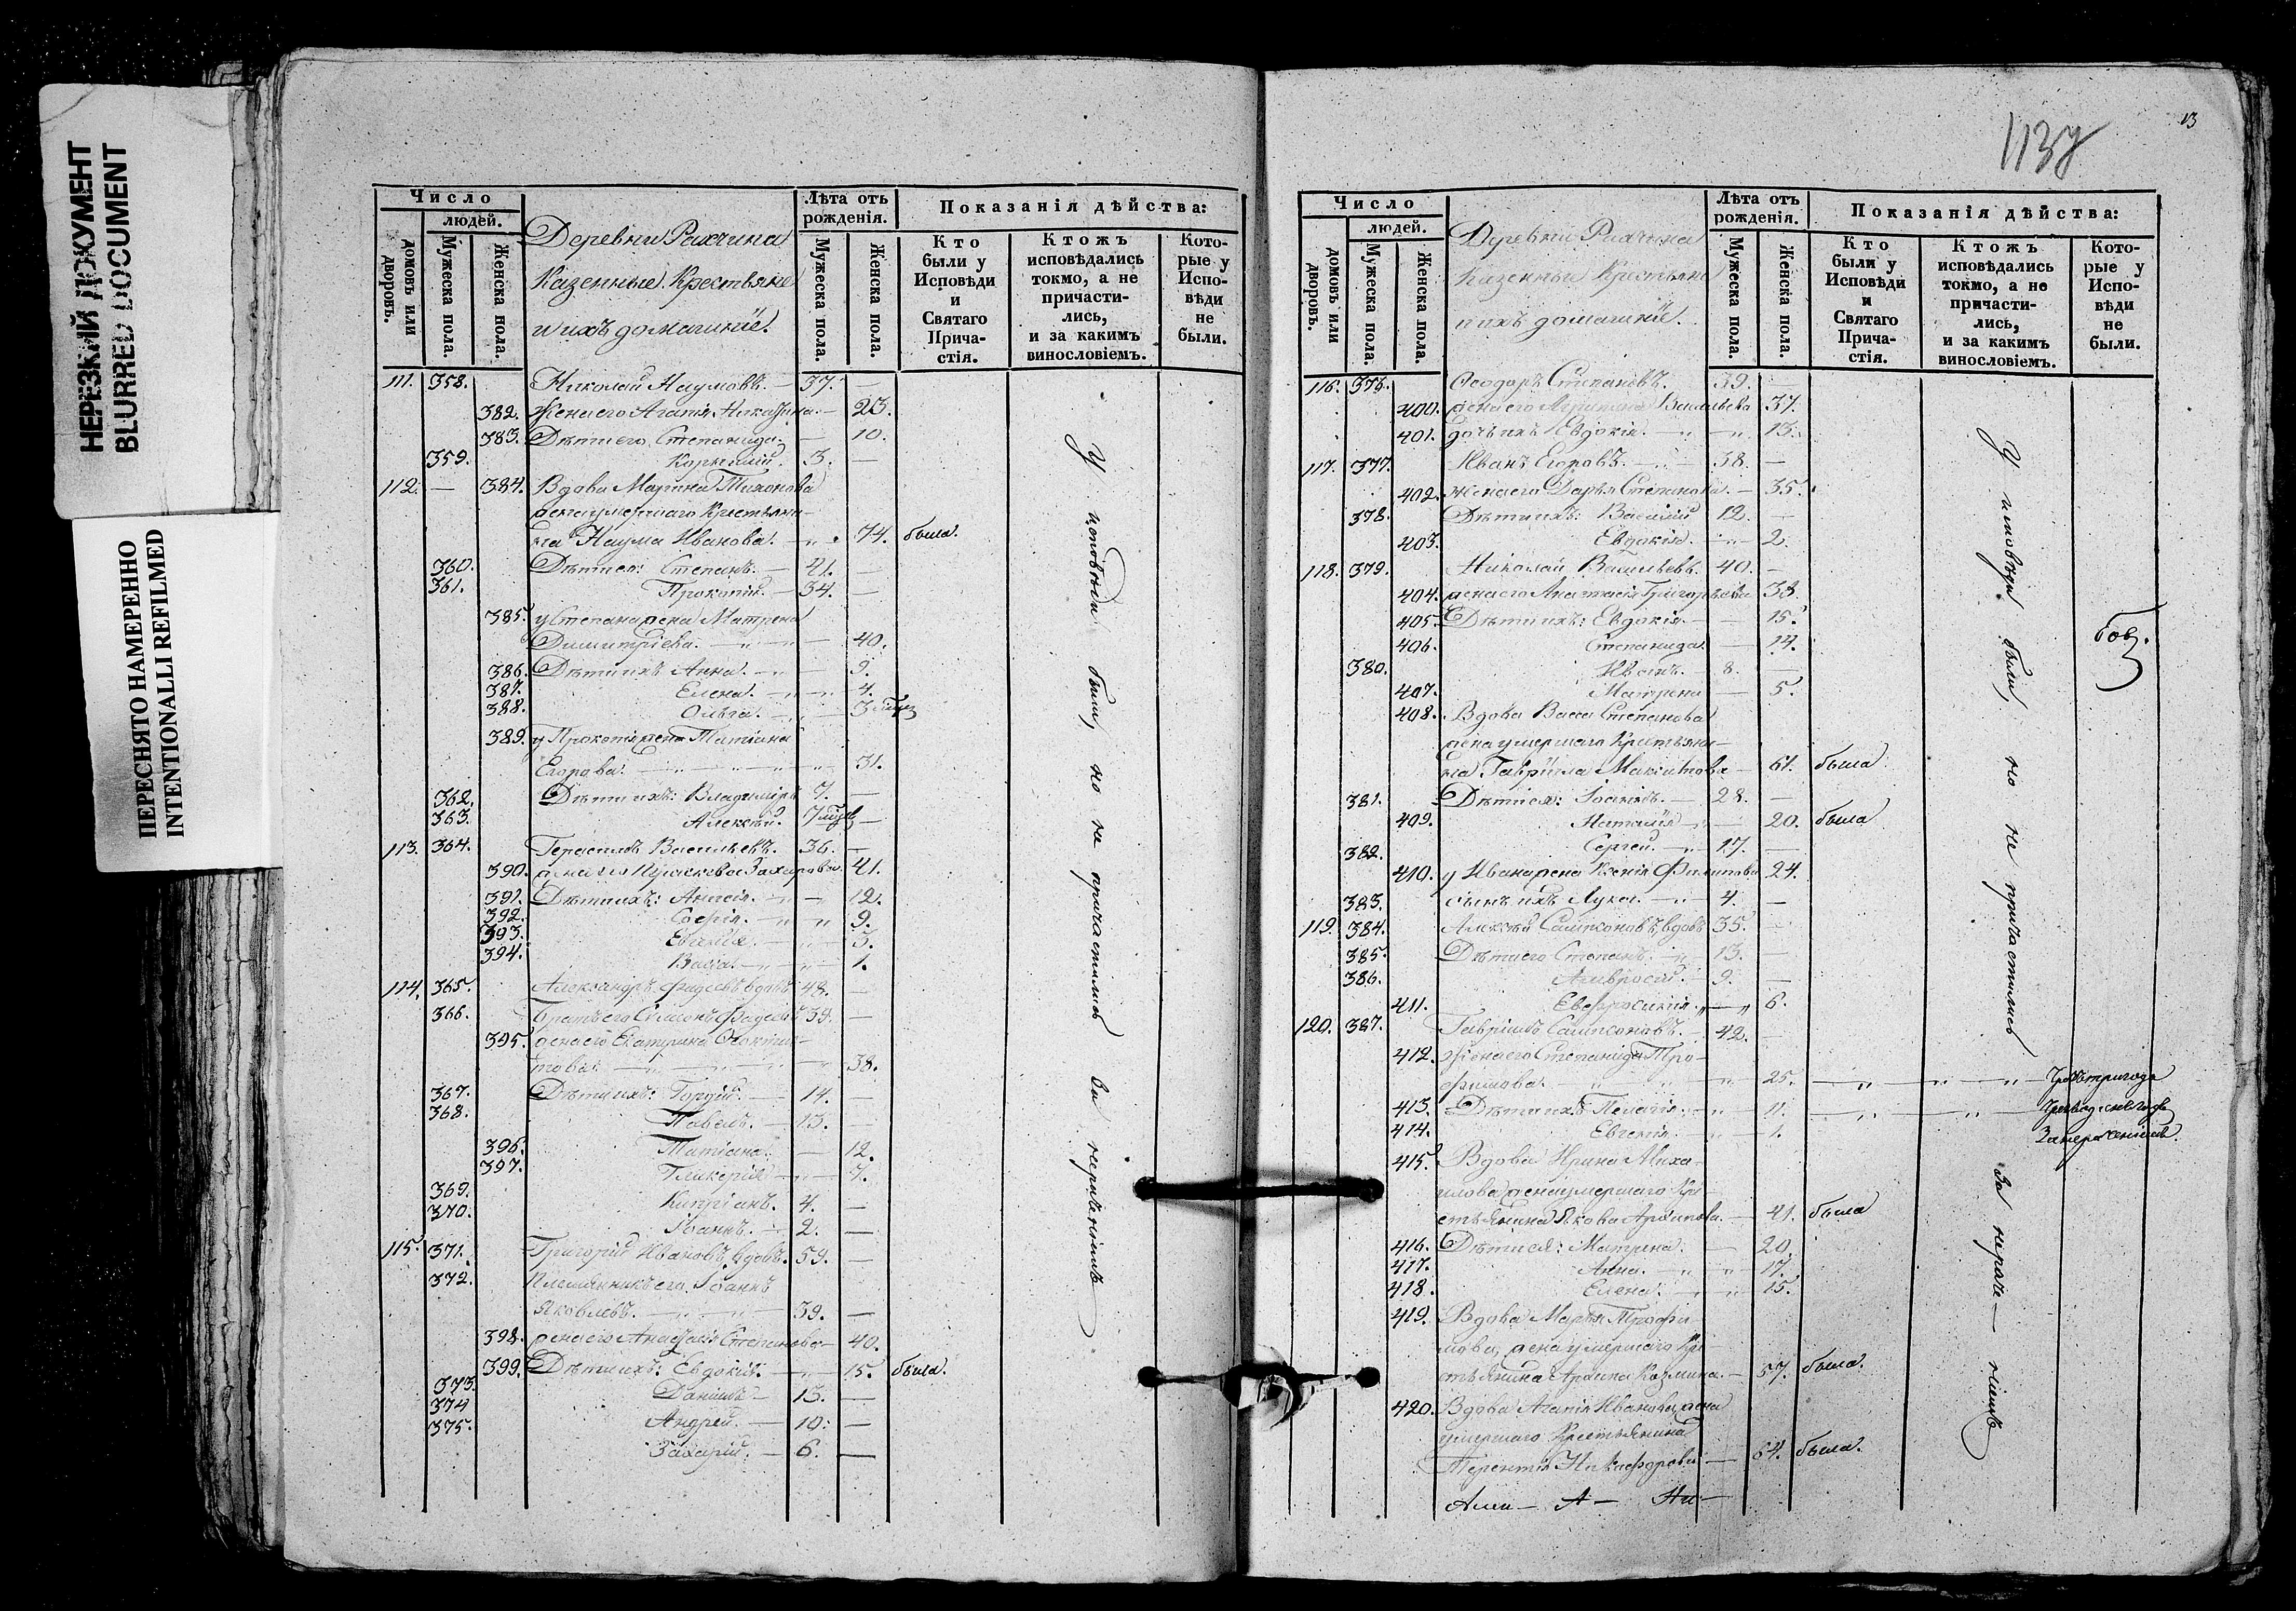 НЕРЕЗКИЙ ДОКУМЕНТ
BLURRED DOCUMENT
ПЕРЕСНЯТО НАМЕРЕННО
INTENTIONALLI REFILMED
Число
людей.
домовъ или дворовъ.
Мужеска пола.
Женска пола.
Деревни Рахчина
Казенные Крестьяне
и ихъ домашніе.
Лѣта отъ рожденія.
Мужеска пола.
Женска пола.
Показанія дѣйства:
Кто были у Исповѣди и Святаго Прича-стія.
Ктожъ исповѣдались токмо, а не причасти-лись, и за какимъ винословіемъ.
Кото-рые у Испо-вѣди не были.
111. 358. Николай Наумовъ. — 37. —
382. Жена его Агапія — 23.
383. Дѣти его, Степанида. — 10.
359. 3. —
112. — 384. Вдова Марина Тихонова
жена умершаго Крестьяни-
на Наума Иванова. — 74. была.
360. Дѣти ея: Степанъ. — 41. —
361. Прокопій. — 34. —
385. у Степана жена Матрена
Димитріева. — 40.
386. Дѣти ихъ Анна. — 9.
387. Елена. — 4.
388. Ольга. — 3
389. у Прокопія жена Татіана
Егорова. — 31.
362. Дѣти ихъ: Владиміръ 7. —
363. Алексѣй. 7 —
113. 364. Герасимъ Васильевъ. 36. —
390. жена его Захарова 41.
391. Дѣти ихъ: — 12.
392. Софія. — 9.
393. 3.
394. Васса. — 1.
114. 365. Александръ Фадеевъ вдовъ 48. —
366. Братъ его Симеонъ Фадеевъ 39. —
395. жена его Екатерина
38.
367. Дѣти ихъ: Гордій. — 14. —
368. Павелъ. — 13. —
396. Татіана. — 12.
397. Гликерія — 7.
369. Кипріанъ. 4. —
370. Іоаннъ. — 2. —
115. 371. Григорій Ивановъ, вдовъ. 59. —
372. Племянникъ его Іоаннъ
Яковлевъ. — 39. —
398. жена его Анастасія Степанова — 40.
399. Дѣти ихъ: Евдокія. — 15. была.
373. Даніилъ — 13. —
374 Андрей. — 10. —
375. Захарій. — 6. —
У исповѣди были, но не причастились за нерачениемъ
13
Число
людей.
домовъ или дворовъ.
Мужеска пола.
Женска пола.
Деревни Рахчина
Казенные Крестьяне
и ихъ домашніе.
Лѣта отъ рожденія.
Мужеска пола.
Женска пола.
Показанія дѣйства:
Кто были у Исповѣди и Святаго Прича-стія.
Ктожъ исповѣдались токмо, а не причасти-лись, и за какимъ винословіемъ.
Кото-рые у Испо-вѣди не были.
116. 376. Ѳеодоръ Степановъ. 39. —
400. жена его Васильева 37.
401. дочь ихъ Евдокія. — 13.
117. 377. Иванъ Егоровъ. — 38. —
402. жена его Дарья Степанова. — 35.
378. Дѣти ихъ: Василій 12. —
403. Евдокія. — 2.
118. 379. Николай Васильевъ. 40. —
404. жена его Анастасія Григорьева 38.
405. Дѣти ихъ: Евдокія. — 15.
406. Степанида. — 14.
380. Иванъ. — 8. —
407. Матрена — 5.
408. Вдова Васса Степанова
жена умершаго Крестьяни-
на Гавріила — 61. была.
381. Дѣти ея: Іоаннъ. — 28. —
409. Наталія — 20. была
382. Сергей. — 17. —
410. у Ивана жена Ксенія Филиппова 24.
383. сынъ ихъ Лука. — 4. —
119. 384. Алексѣй Сампсоновъ, вдовъ 35. —
385. Дѣти его Степанъ. 13. —
386. Амвросій. 9. —
411. Евфросинія. — 6.
120. 387. Гавріилъ Сампсоновъ. — 42. —
412. Жена его Степанида Тро-
фимова. 25.
413. Дѣти ихъ Пелагія. — 11.
414. Евгенія. — 1.
415. Вдова Ирина Миха-
илова жена умершаго Кре-
стьянина Якова Архипова. — 41. была
416. Дѣти ея: Матрена. — 20.
417. Анна. — 17.
418. Елена. — 15.
419. Вдова Марья Трофи-
мова, жена умершаго Кре-
стьянина Козмина. — 57. была.
420. Вдова Агапія Иванова, жена
умершаго Крестьянина
Терентія Никифорова — 64. была.
У исповѣди были, но не причастились за нераче— ніемъ